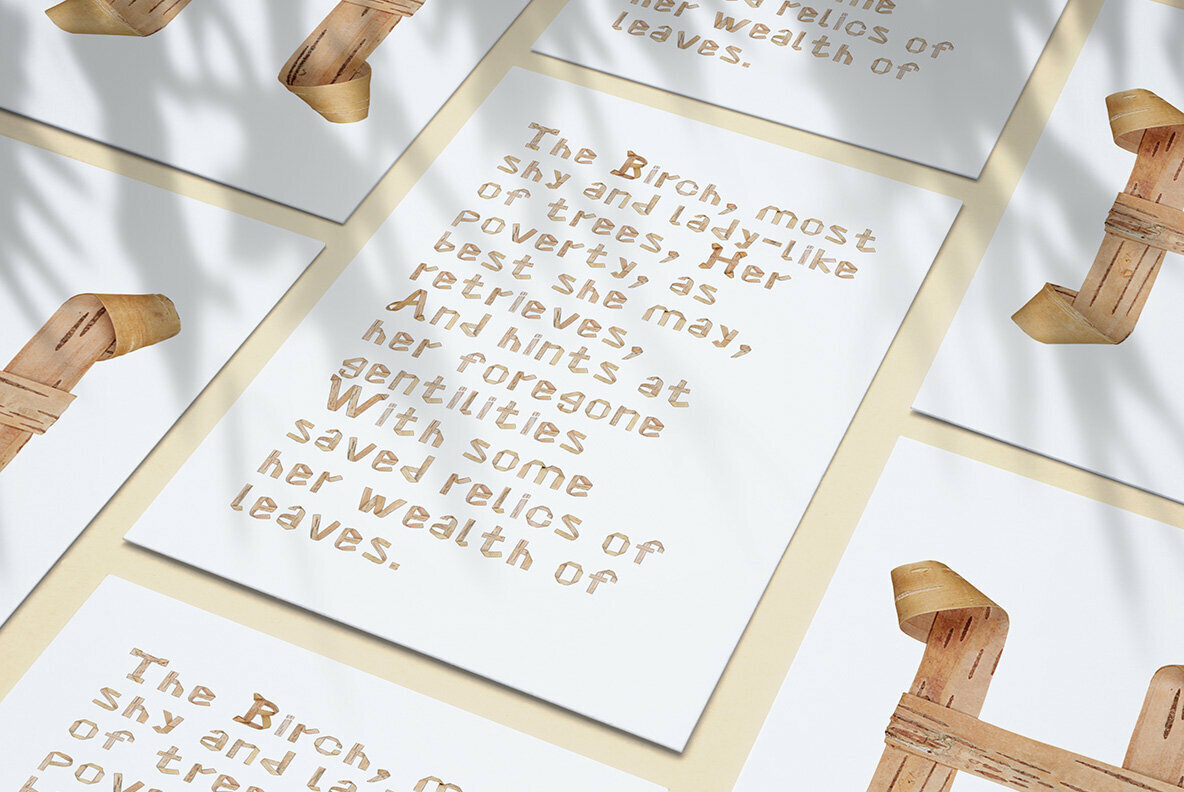 relics of
her wealth of
leaves.
The Birch, most
shy and lady-like
of trees, Her
poverty, as
best she may,
retrieves,
And hints at
her foregone
gentilities
With some
saved relics of
her wealth of
leaves.
The Birch, m
shy and la
of tree
pov